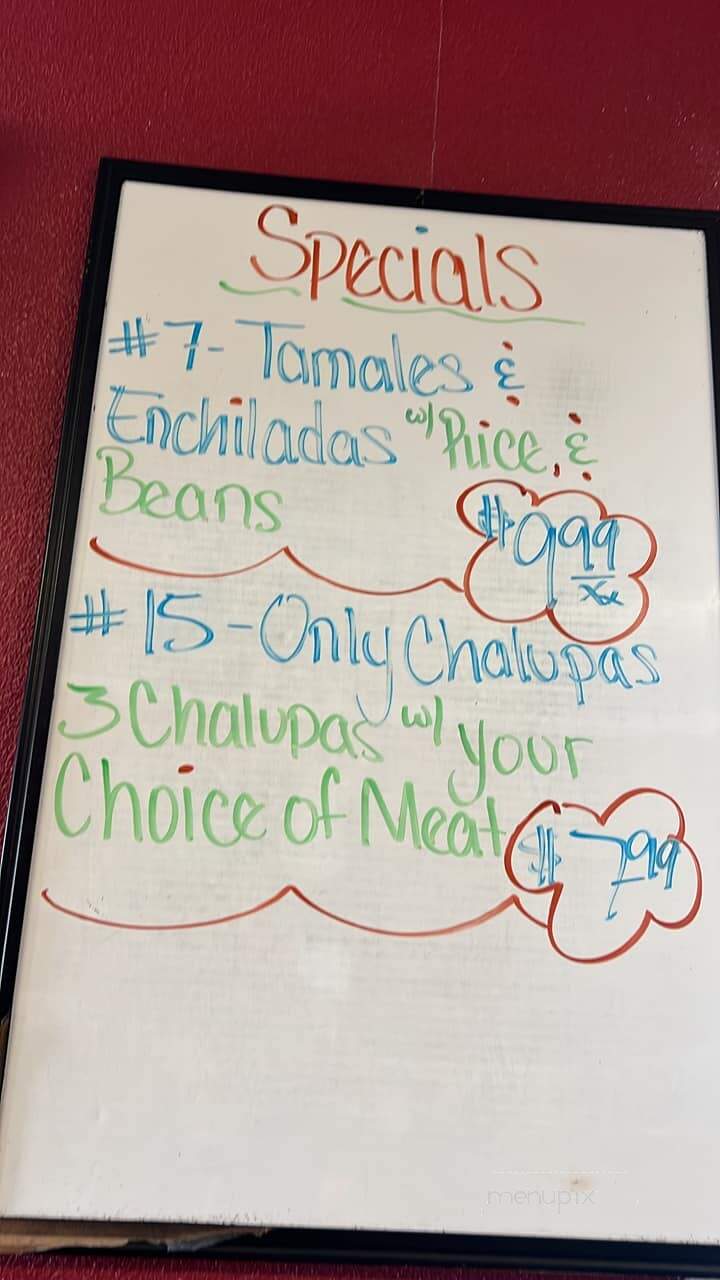 Specials
#7- Tamales &
Enchiladas w/ Rice, &
Beans
$9.99
xx
#15 - Only Chalupas
3 Chalupas w/ your
Choice of Meat
$7.99
menupix